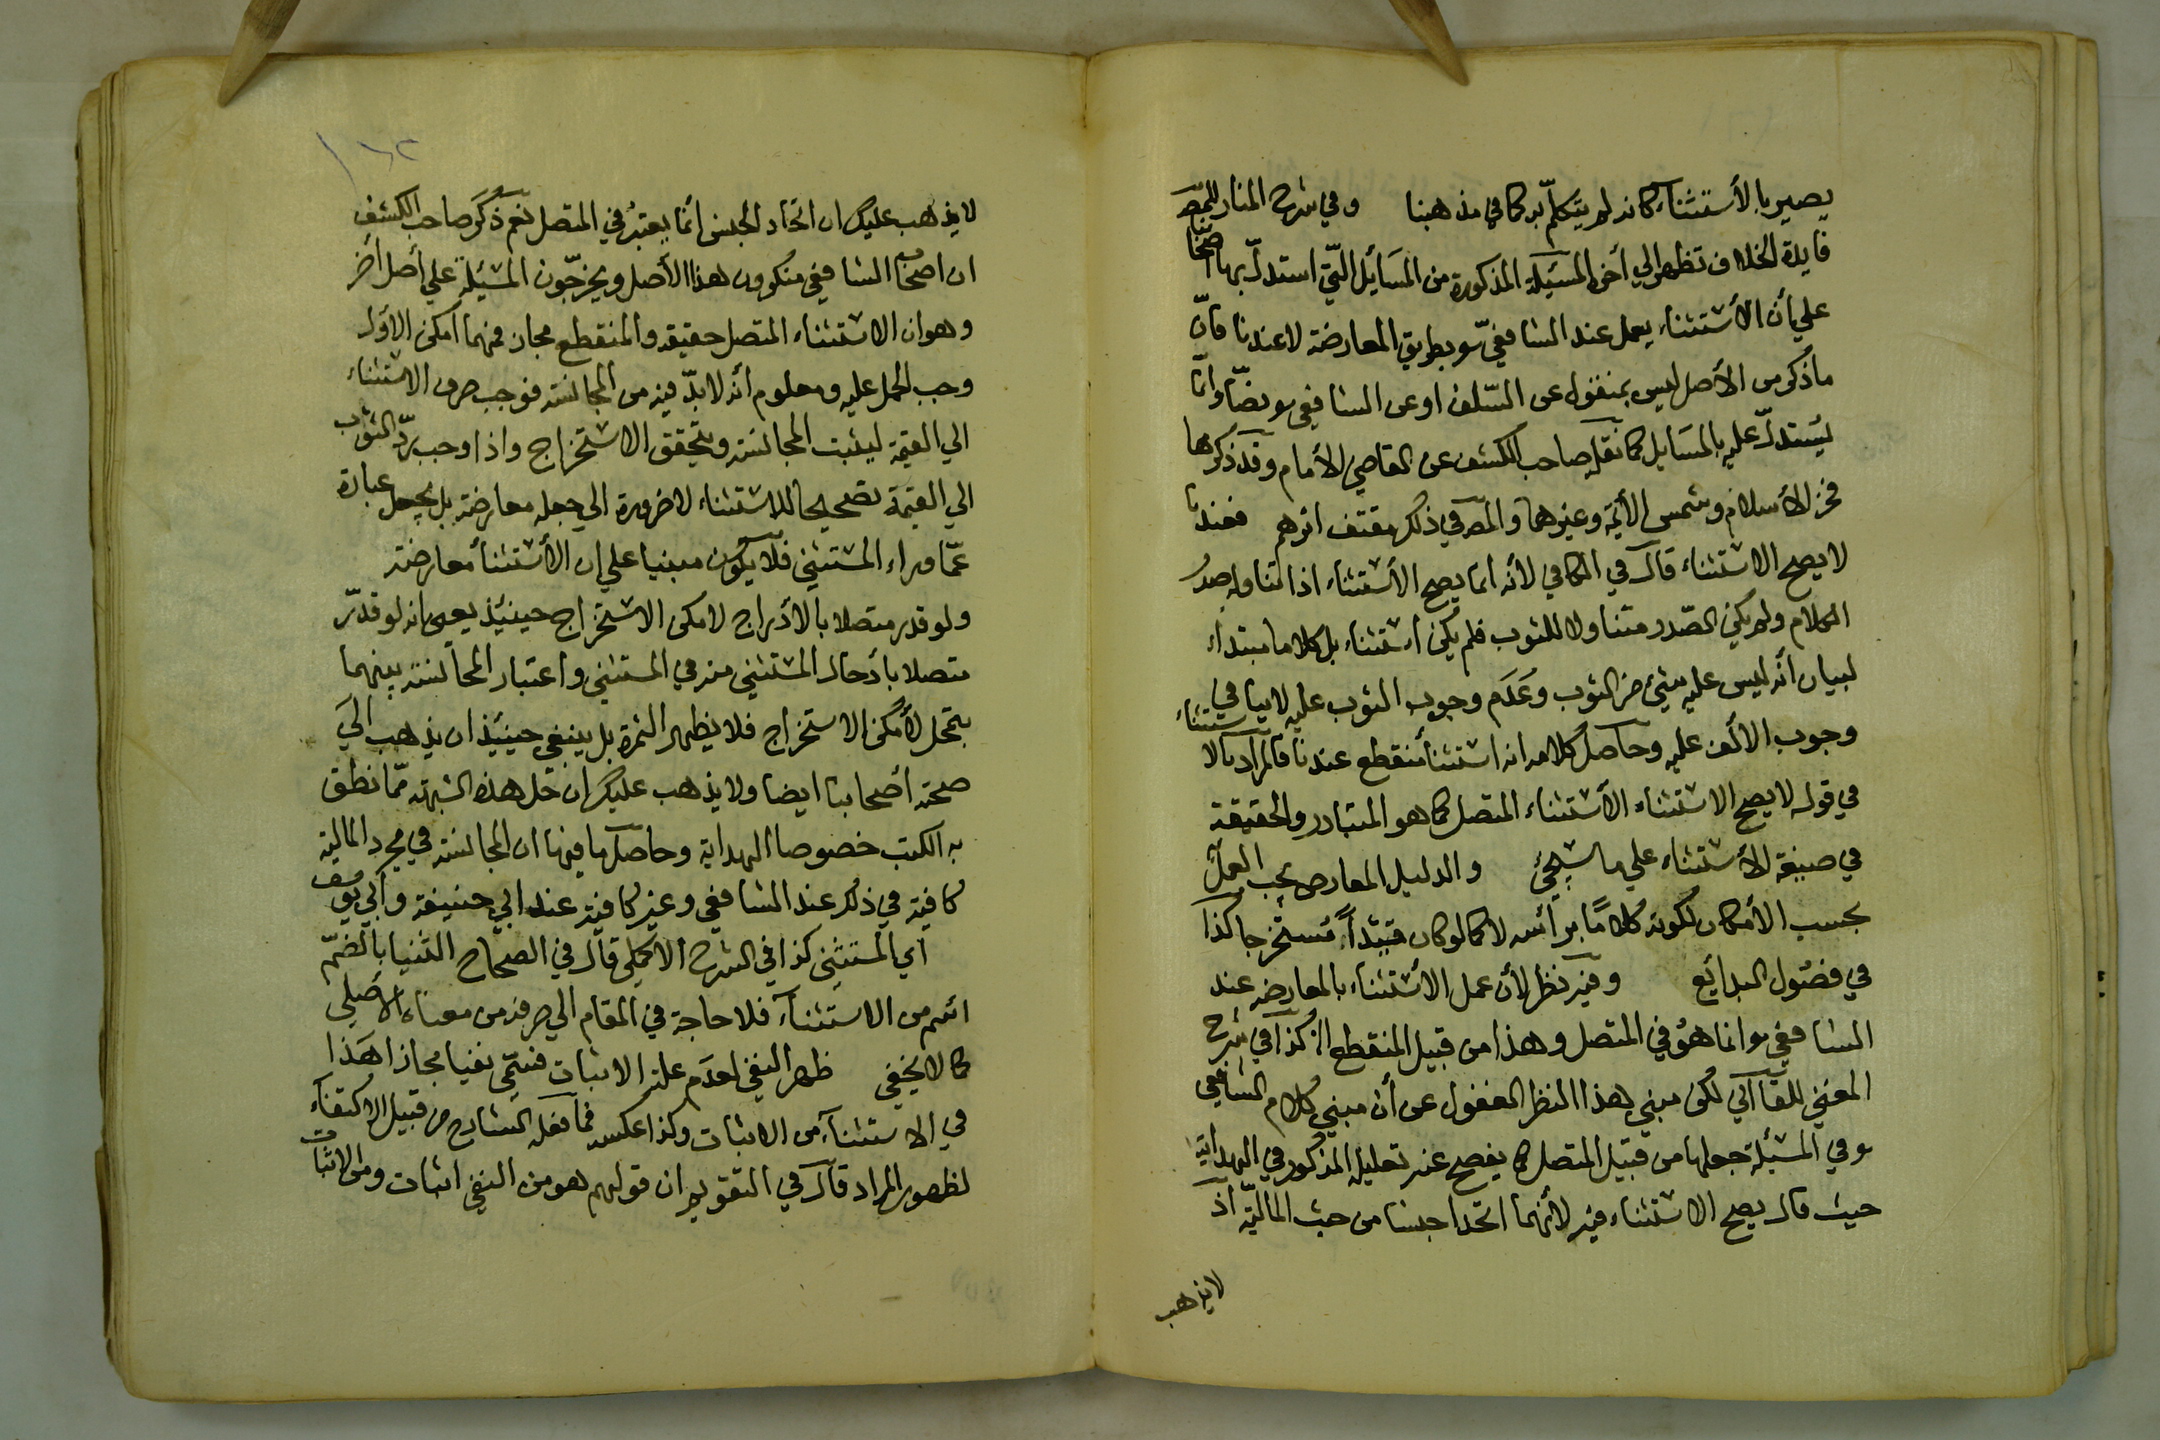 يصير بالأستثناء كانه لم يتكلّم به كما في مذهبنا وفي شرح المنار للمص
فايدة الخلاف تظهر الي أخر المسئلة المذكورة من المسَائل التّي استدلّ بها اصحابنا
علي أن الأستثناء يعمل عند الشافعيّ سو بطريق المعارضة لا عندنا فانّ
ما ذكر من الأصل ليس بمنقول عن السّلف او عن الشافعي سو نصّا وانّما
يستدلّ عليه بالمسَايل كما نقله صاحب الكشف عن القاضي الأمام وقد ذكرها
فخر الأسلام وشمس الأئمة وغيرهما والمص في ذلك مقتف اثرهم فعندنا
لا يصح الاستثناء قال في الكافي لأنه انما يصح الأستثناء اذا تناوله صدر
الكلام ولم يكن الصّدر متناولا للثوب فلم يكن استثناء بل كلاما مبتداء
لبيان أنه ليس عليه شئ من الثوب وعَدَم وجوب الثوب عليه لا ينافي
وجوب الألف عليه وحاصل كلامه انه استثناء منقطع عندنا فالمراد بالاستثناء
في قوله لا يصح الاستثناء الأستثناء المتصل كما هو المتبادر والحقيقة
في صيغة الأستثناء علي ما سيجئ والدليل المعارض يجب العمل
بحسب الأمكان لكونه كلامًا برأسه لا كما لو كان قيدًا مُستخرجا كذا
في فصُول البدايع وفيه نظر لأن عمل الأستثناء بالمعارضه عند
الشافعي سو انما هوُ في المتصل وهذا من قبيل المنقطع الخ كذا في شرح
المغني للقاآني لكن مبني هذا النظر الغفول عن أن مبني كلام الشافعي
سو في المسئلة جعلها من قبيل المتصل كما يفصح عنه تعليله المذكور في الهداية
حيث قال يصح الاستثناء فيه لأنهما اتحدا جنسا من حيث الماليّة اذ
لا يذهب
١٦٣
لا يذهب عليك ان اتحاد الجنس أنما يعتبرُ في المتصل نعم ذكر صاحب الكشف
ان اصحاب الشافعي منكرون هذا الأصل ويخرّجون المسئلة علي أصل أخر
وهو ان الاستثناء المتصل حقيقه والمنقطع مجاز فمهما أمكن الاوّل
وجب الحمل عليه ومعلوم أنه لا بدّ فيه من المجانسة فوجب صرف الاستثناء
الي القيمة ليثبت المجانسة ويتحقق الاستخراج واذا وجب ردّ الثوب
الي القيمة تصحيحا للاستثناء لا ضرورة الي جعله معارضة بل يجعل عبارة
عمّا وراء المستثني فلا يكون مبنيا علي ان الأستثناء معارضة
ولو قدر متصلا بالأدراج لامكن الاستخراج حينئذ يعني انه لو قدّر
متصلا بأدخال المستثني منه في المستثني واعتبار المجانسة بينهما
بتمحل لأمكن الاستخراج فلا يظهر الثمرة بل ينبغي حينئذ ان يذهب الي
صحته أصحابنا ايضا ولا يذهب عليك ان حلّ هذه الشبهه ممّا نطق
به الكتب خصوصا الهداية وحاصلها فيها ان المجانسة في مجرد المالية
كافية في ذلك عند الشافعي وغير كافية عند ابي حنيفة وأبي يوسف
أي المستثني كذا في الشرح الاكملي قال في الصحاح الثنيا بالضمّ
اسم من الاستثناء فلا حاجة في المقام الي صرفه من معناه الأصلي
كما لا يخفي ظهر النفي لعدَم علة الاثبات فسمّي نفيا مجازا هَذا
في الاستثناء من الاثبات وكذا عكسه فما فعله الشارح من قبيل الاكتفاء
لظهور المراد قال في التقويم ان قولهم هو من النفي اثبات ومن الاثبات